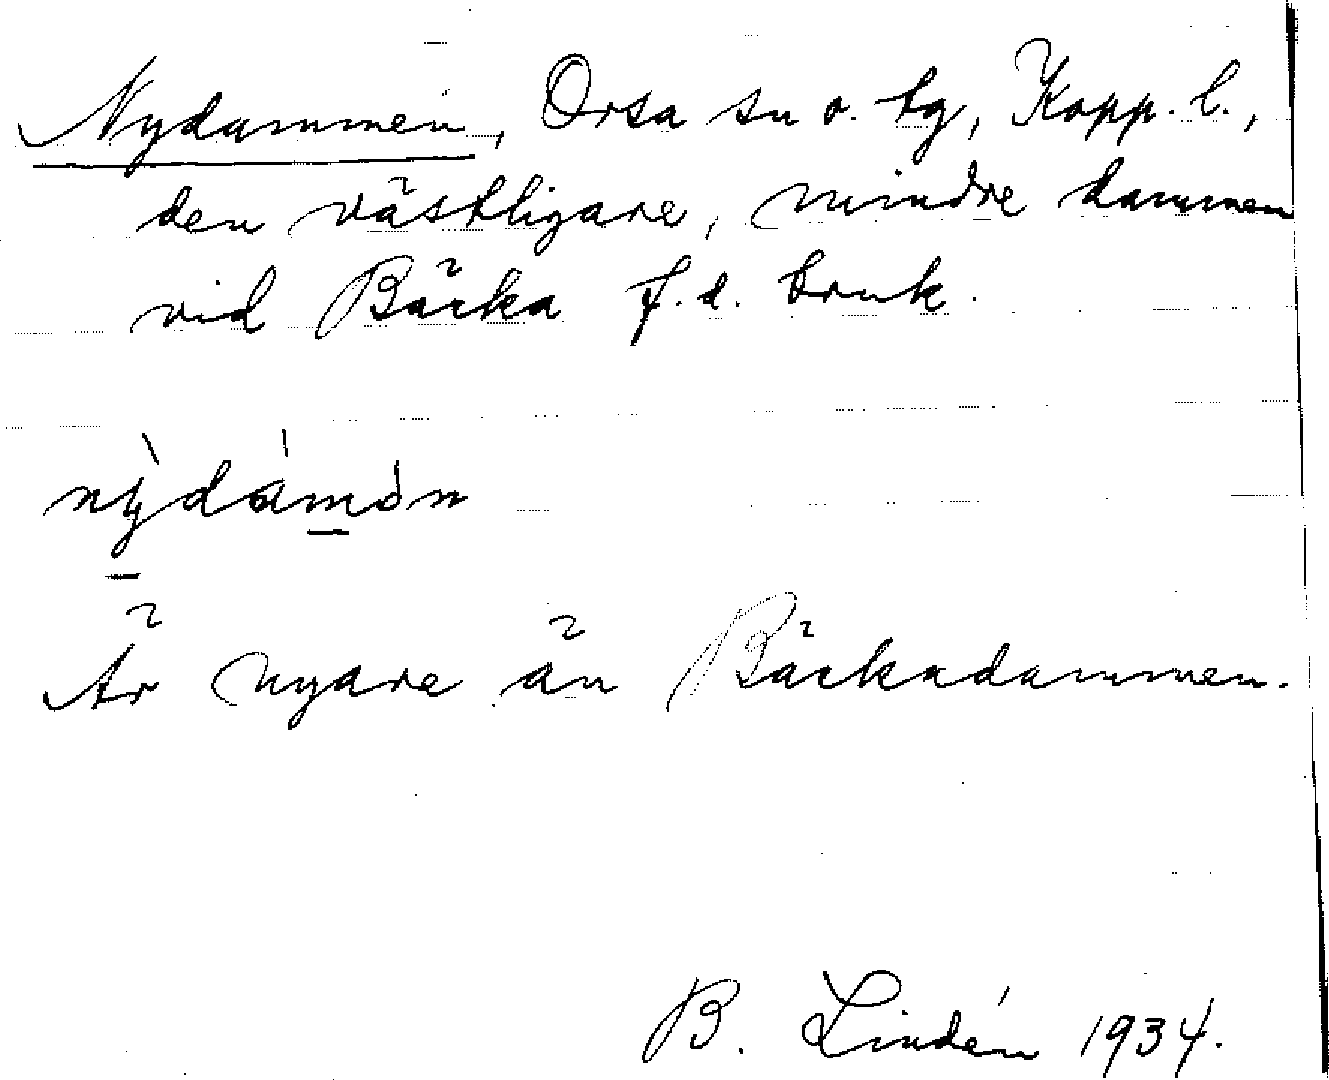 Nydammen, Orsa sn o. tg, Kopp. l.,
den västligare, mindre dammen
vid Bäcka f.d. bruk.
nỳdámən
Är nyare än Bäckadammen.
B. Lindén 1934.